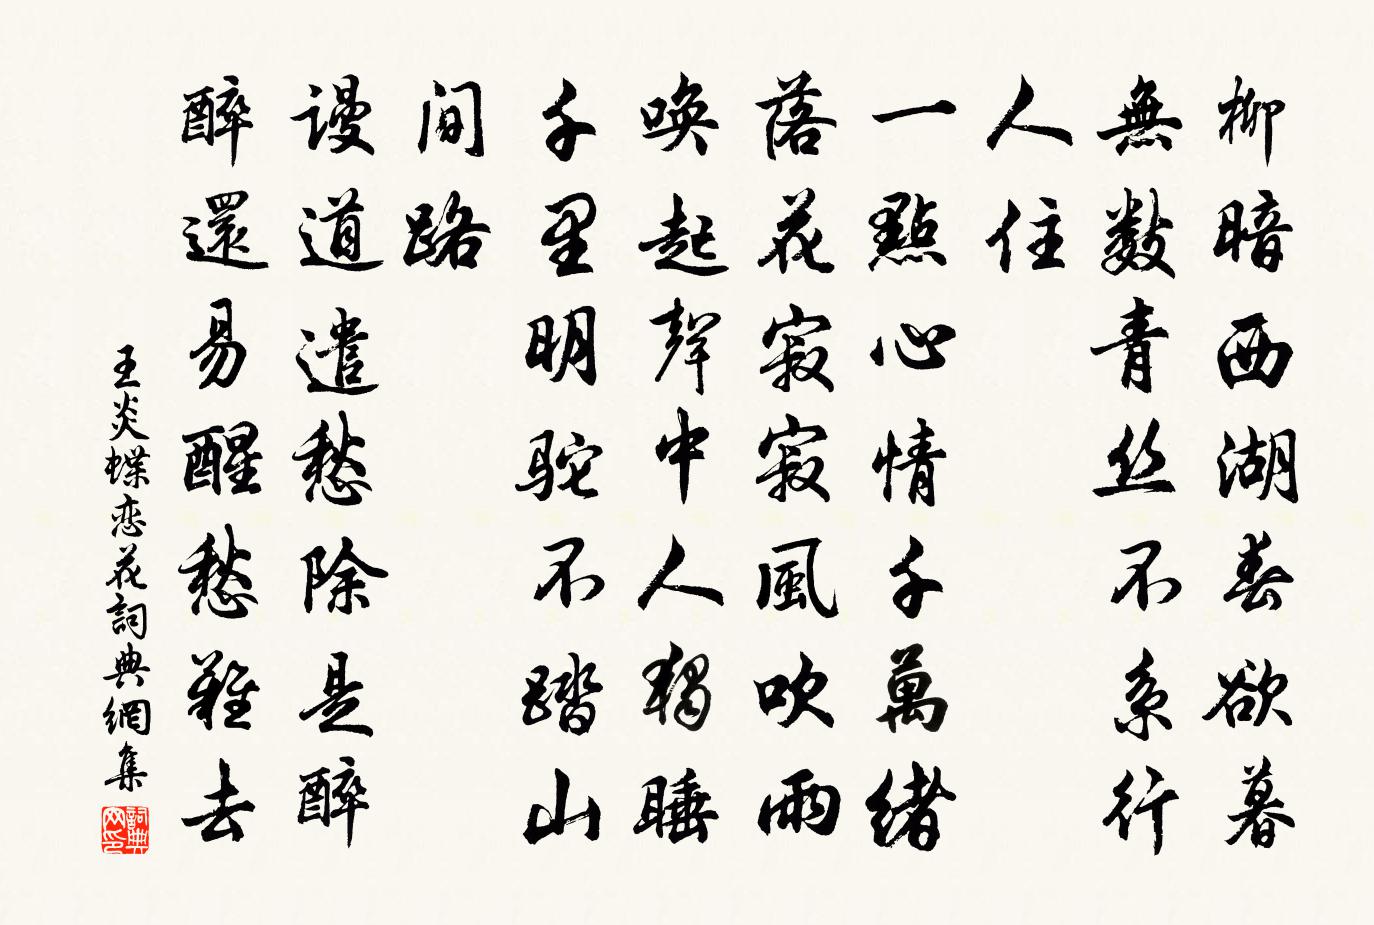 柳暗西湖春欲暮
無數青丝不系行
人住
一點心情千萬緒
落花寂寂風吹雨
喚起聲中人獨睡
千里明駝不踏山
间路
謾道遣愁除是醉
醉還易醒愁難去
王炎蝶恋花詞典網集
詞典
网印